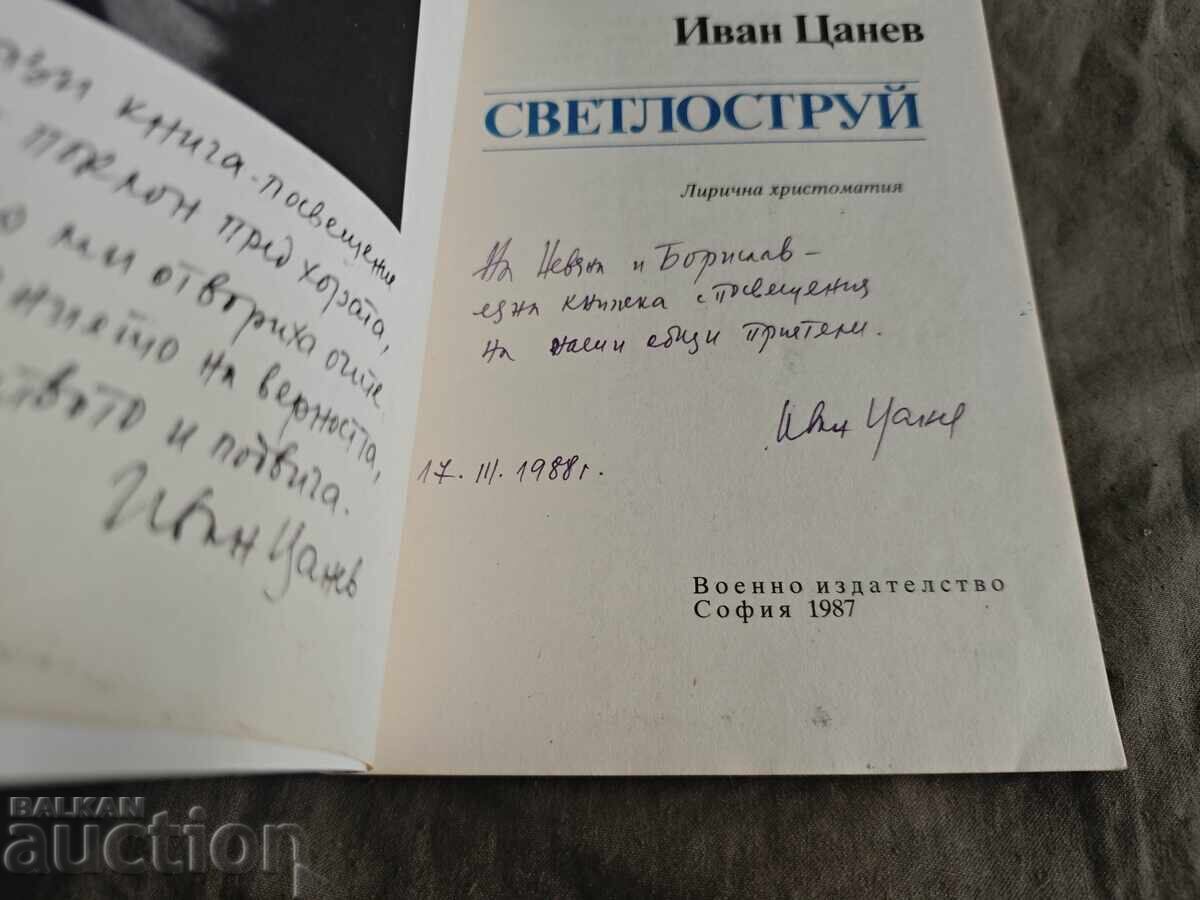 ази книга-посвещение
поклон пред хората,
о ми отвориха очите
нието на верността,
ството и подвига.
Иван Цанев
Иван Цанев
СВЕТЛОСТРУЙ
Лирична христоматия
На Невяна и Борислав –
една книжка с посвещения
на наши общи приятели.
Иван Цанев
17. III. 1988 г.
Военно издателство
София 1987
BALKAN
auction